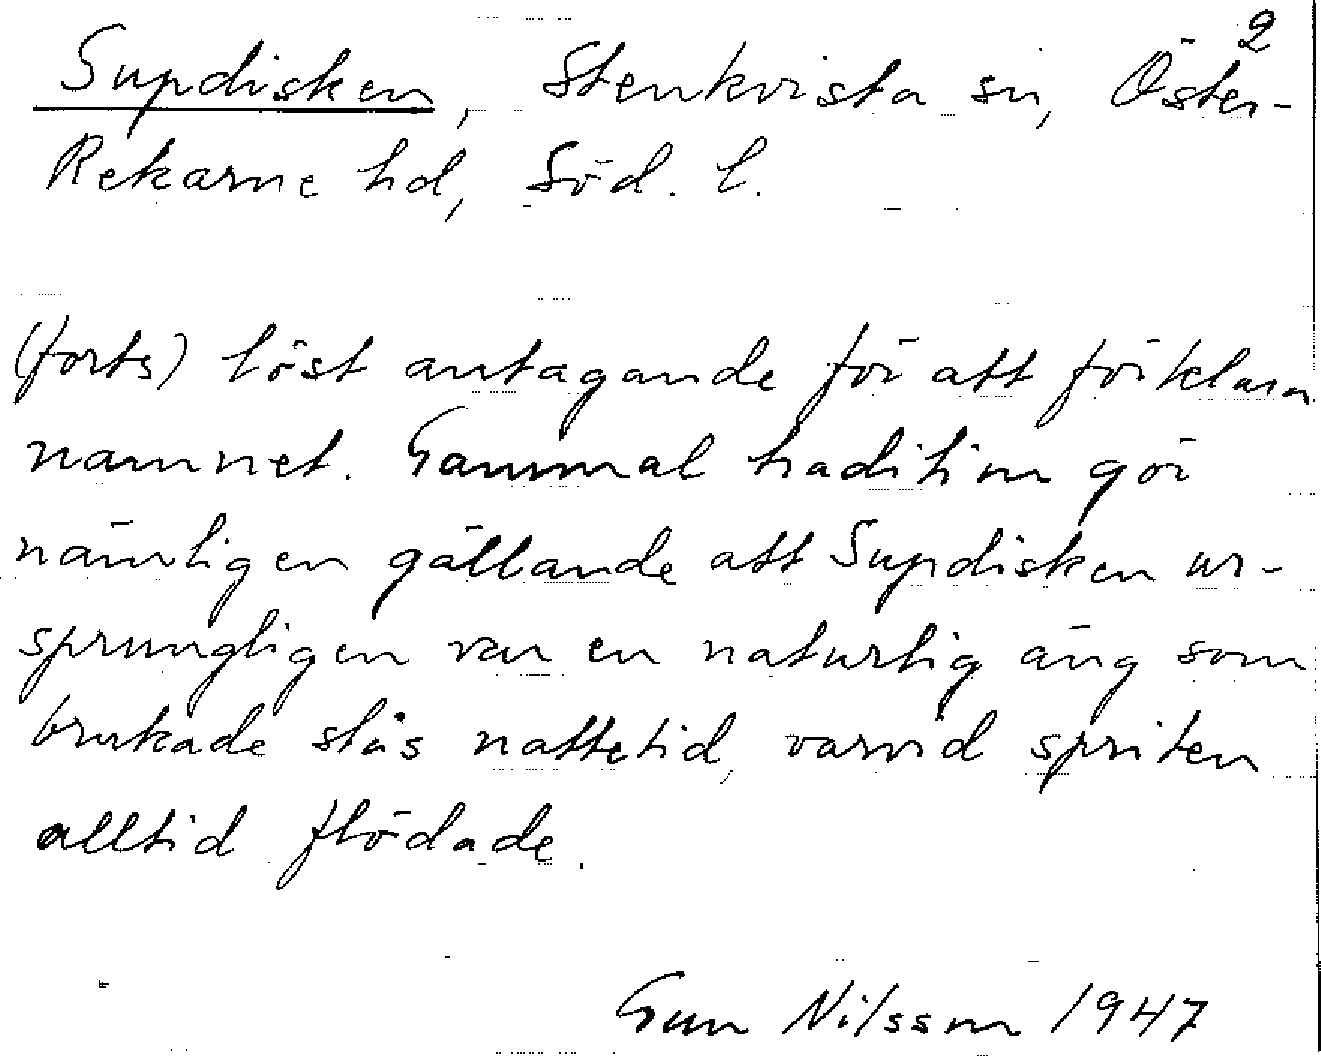 2
Supdisken, Stenkvista sn, Öster-
Rekarne hd, Söd. l.
(forts) löst antagande för att förklara
namnet. Gammal tradition gör
nämligen gällande att Supdisken ur-
sprungligen var en naturlig äng som
brukade slås nattetid, varvid spriten
alltid flödade.
Gun Nilsson 1947